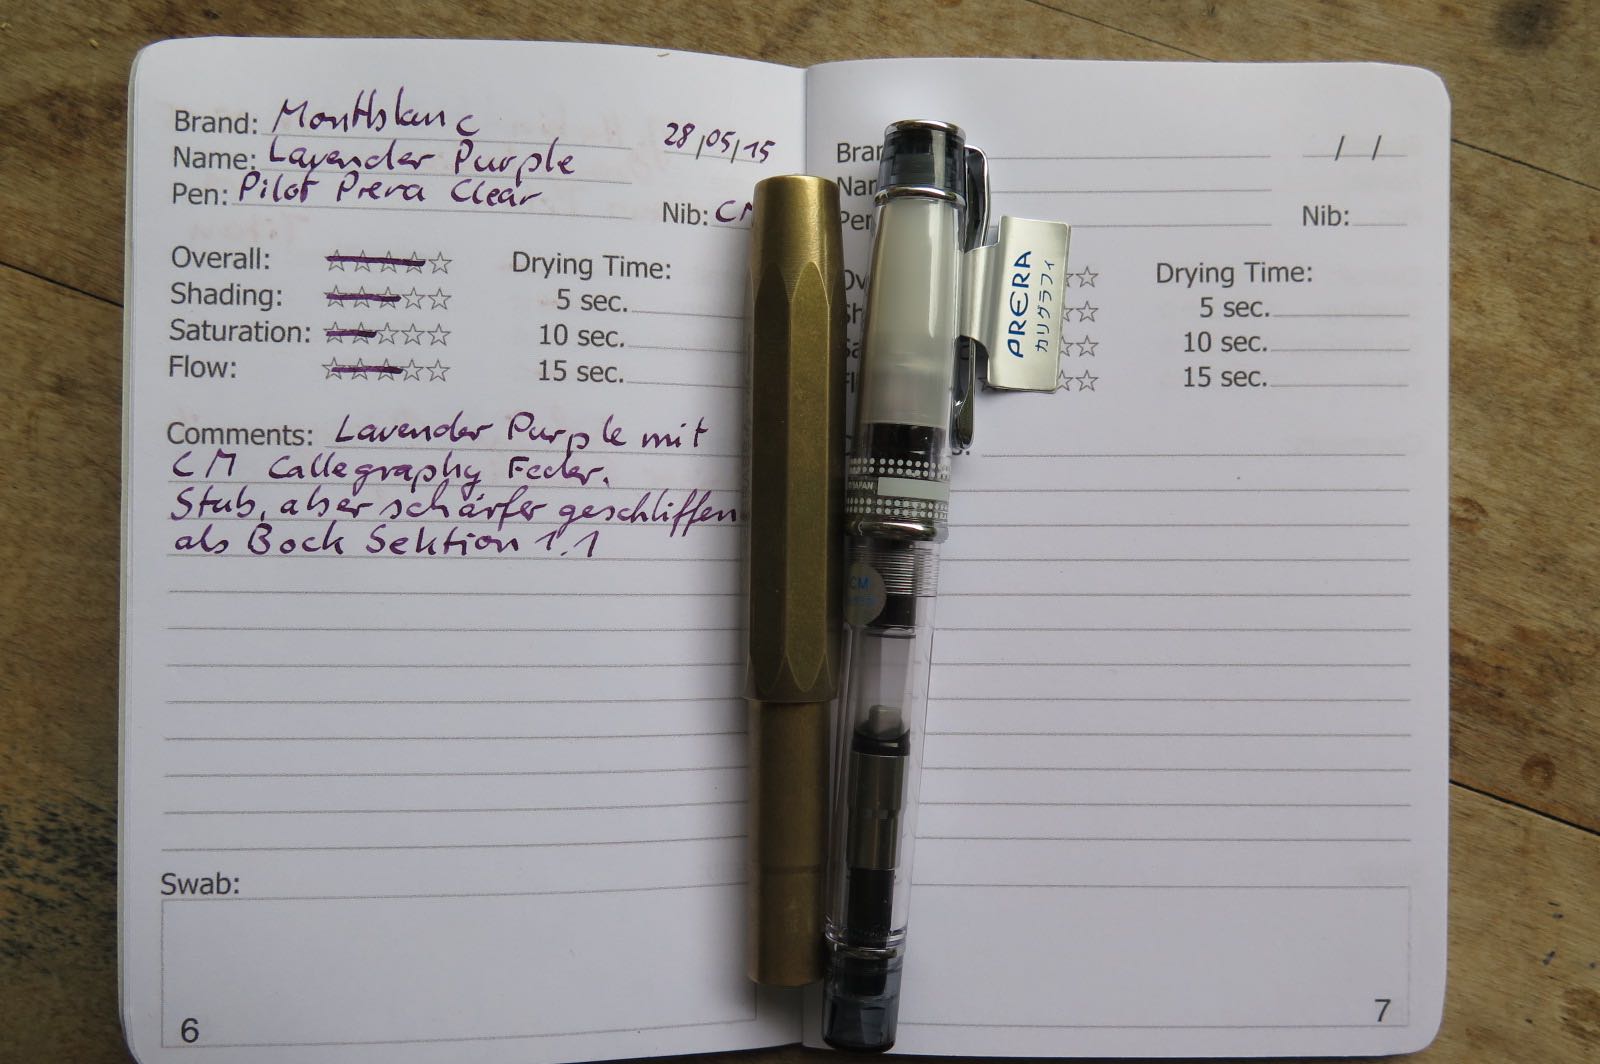 Brand: Montblanc 28/05/15
Name: Lavender Purple
Pen: Pilot Prera Clear Nib: CM
Overall: ☆☆☆☆☆ Drying Time:
Shading: ☆☆☆☆☆ 5 sec.
Saturation: ☆☆☆☆☆ 10 sec.
Flow: ☆☆☆☆☆ 15 sec.
Comments: Lavender Purple mit
CM Callegraphy Feder.
Stub, aber schärfer geschliffen
als Bock Sektion 1.1
Swab:
6
PRERA
カリグラフィ
JAPAN
CM
Bra / /
Na
Pe Nib:
Ov ☆☆ Drying Time:
Sh ☆☆ 5 sec.
Sa ☆☆ 10 sec.
Fl ☆☆ 15 sec.
s:
7